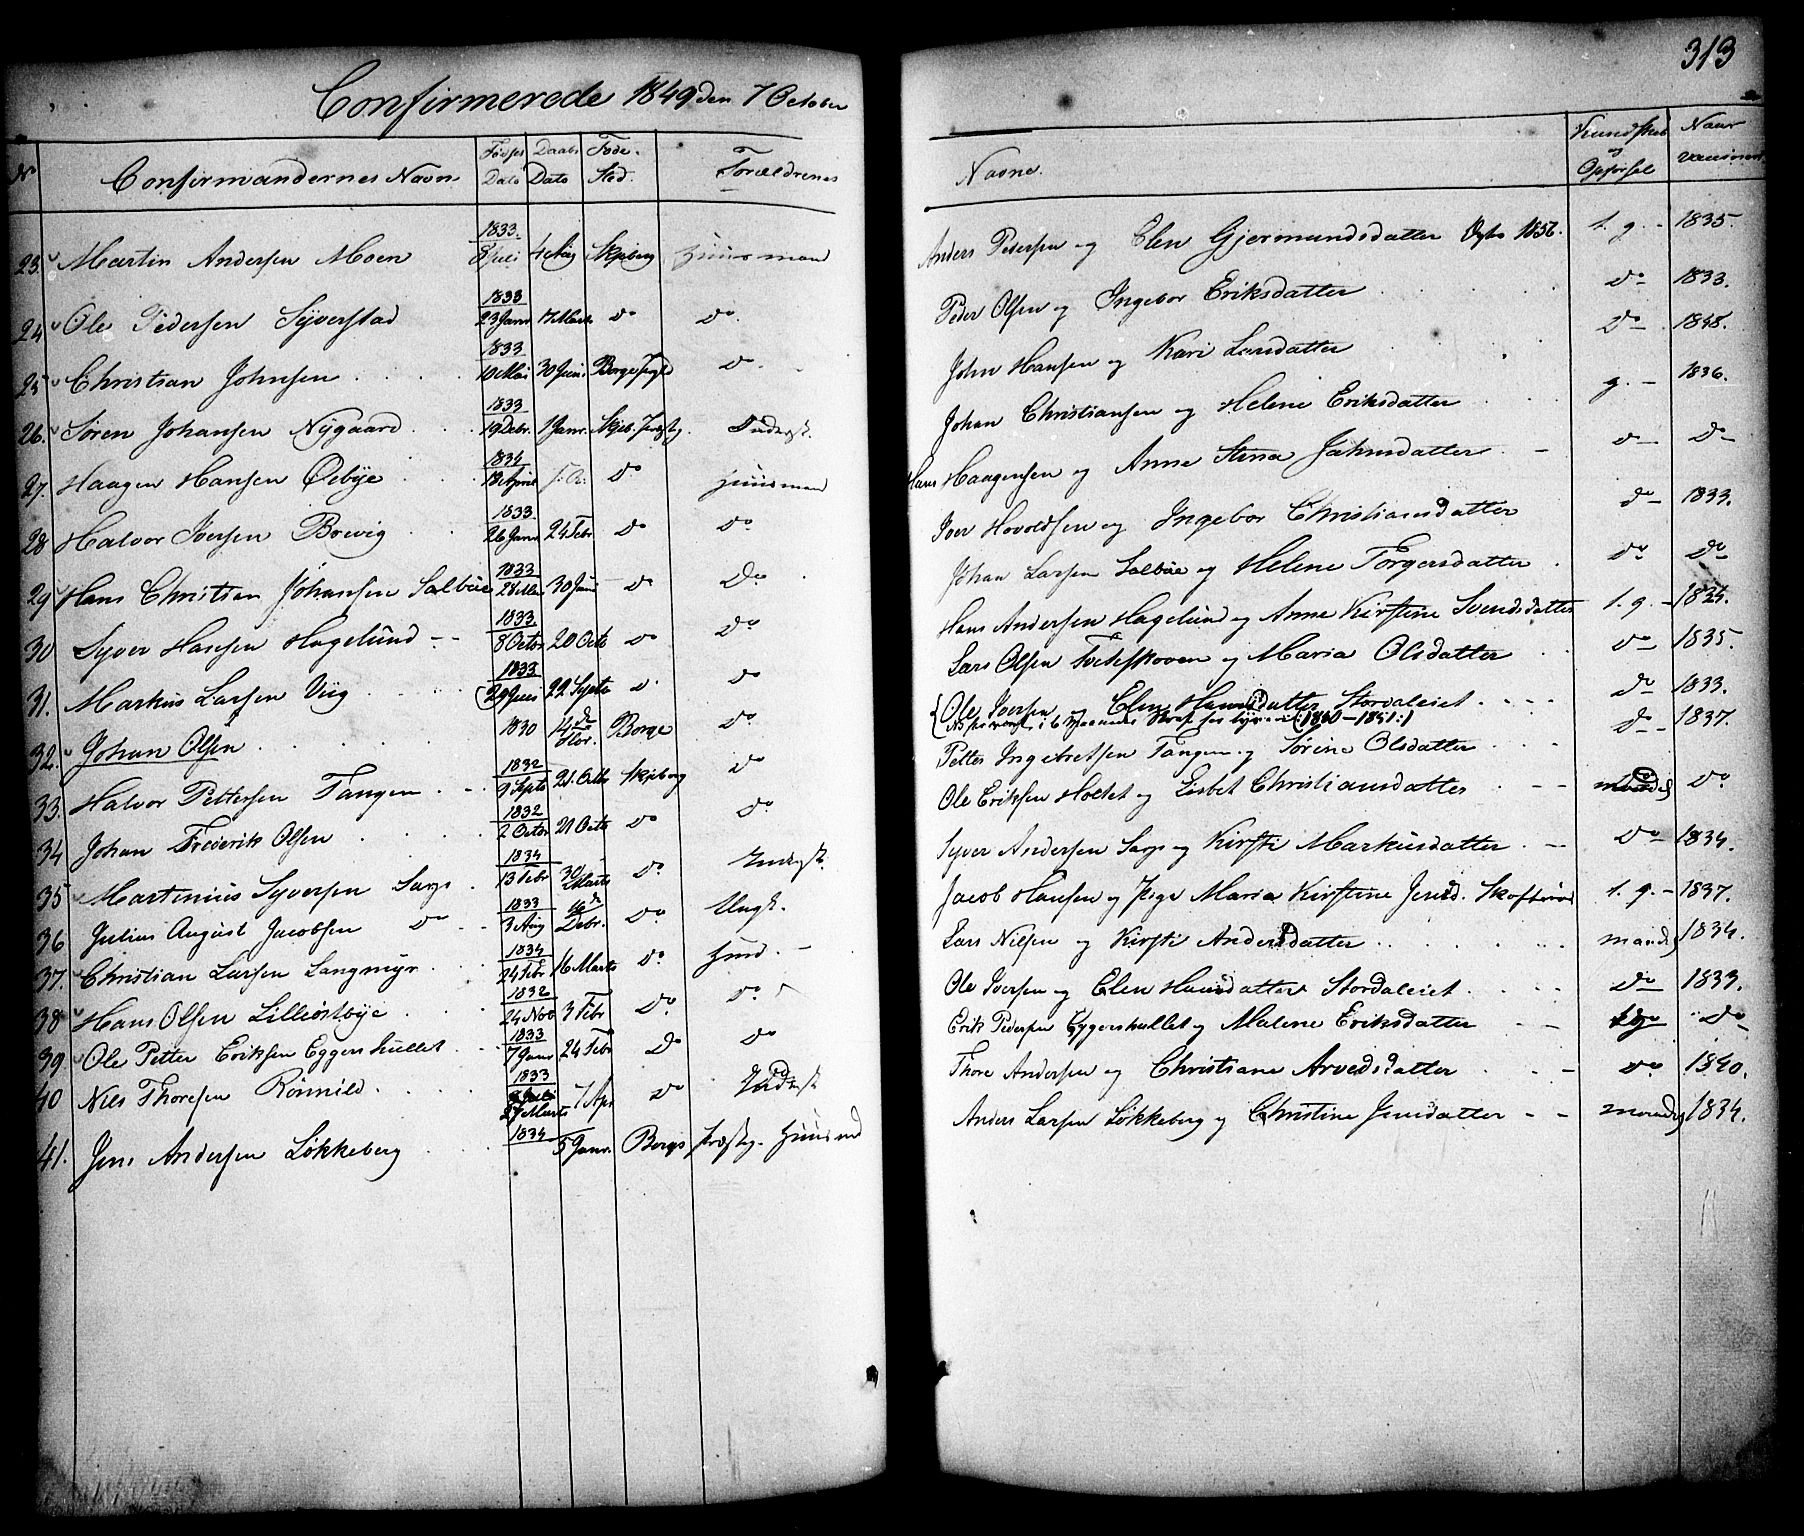 313
Confirmerede 1849 den 7 October
No Confirmandernes Navn Fødsels Dato Daabs Dato Føde- Sted. Forældrenes
Navne. Kundskab og Opførsel Naar vaccineret
23. Martin Andersen Moen 1833. 8 Juli 4 Aug Skjeberg Huusmand
Anders Pedersen og Elen Gjermundsdatter 1856. t. g. - 1835.
24 Ole Pedersen Syverstad 1833 23 Janr 17 Marts do do.
Peder Olsen og Ingebor Eriksdatter do - 1833.
25 Christian Johnsen 1833 10 Mai 30 Juni Borge do.
John Hansen og Kari Larsdatter do - 1848.
26. Søren Johansen Nygaard 1833 19 Debr. 1 Janr. Skjeb. Præstg.
Johan Christiansen og Helene Eriksdatter g. - 1836.
27. Haagen Hansen Oebye 1834 13 April do Huusmand
Hans Haagensen og Anne Stina Jahnsdatter do - do -
28 Halvor Iversen Borvig 1833. 26 Janr 24 Febr do do
Iver Hovoldsen og Ingebor Christiansdatter do - 1833.
29 Hans Christian Johansen Salbue 1833 28 Mai 30 Juni do do.
Johan Larsen Salbue og Helene Torgersdatter do do
30 Syver Hansen Hagelund 1833. 8 Octbr 20 Octb do do
Hans Andersen Hagelund og Anne Kirstine Svendsdatter t. g. - 1834.
31. Markus Larsen Viig 1833 29 Juli 22 Septbr do do
Lars Olsen og Maria Olsdatter do - 1835.
32. Johan Olsen 1830 14de Borge do
Ole Iversen og Elen Hansdatter Stordaleiet do 1833.
(1850-1851:)
33. Halvor Pettersen Tangen 1832 9 Septb 21. Octb Skjeberg do
Petter Ingebretsen Tangen og Sørine Olsdatter do - 1837.
34 Johan Frederik Olsen 1832 2 Octbr 21 Octb do do
Ole Eriksen Holtet og Lisbet Christiansdatter do.
35 Martinius Syversen Sarps 1834 13 Febr 30 Marts do. Inderst.
Syver Andersen Sarps og Kirsti Markusdatter do 1834.
36 Julius August Jacobsen do 1833 3 Aug 16de Debr. do Ungk.
Jacob Hansen og Pige Maria Kirstine Jensd. t. g. - 1837.
37. Christian Larsen Langmyr 1834 24 Febr 16 Marts do. Huusd.
Lars Nilsen og Kirsti Andersdatter maadel 1834.
38 Hans Olsen Lilliøstbye 1832 24 Nov 3 Febr do. do.
Ole Iversen og Elen Hansdatter Stordaleiet do 1833.
39. Ole Petter Eriksen Eggershullet 1833 7 Janr 24 Febr do do
Erik Pedersen Eggershullet og Malene Eriksdatter do -
40 Nils Thoresen Rønnild 1833 27 Marts 7 Apr do
Thore Andersen og Christiane Arvedsdatter do. 1840.
41. Jens Andersen Løkkeberg 1834 5 Janr. Borge Præstg. Huusmd
Anders Larsen Løkkeberg og Christine Jensdatter maadel 1834.